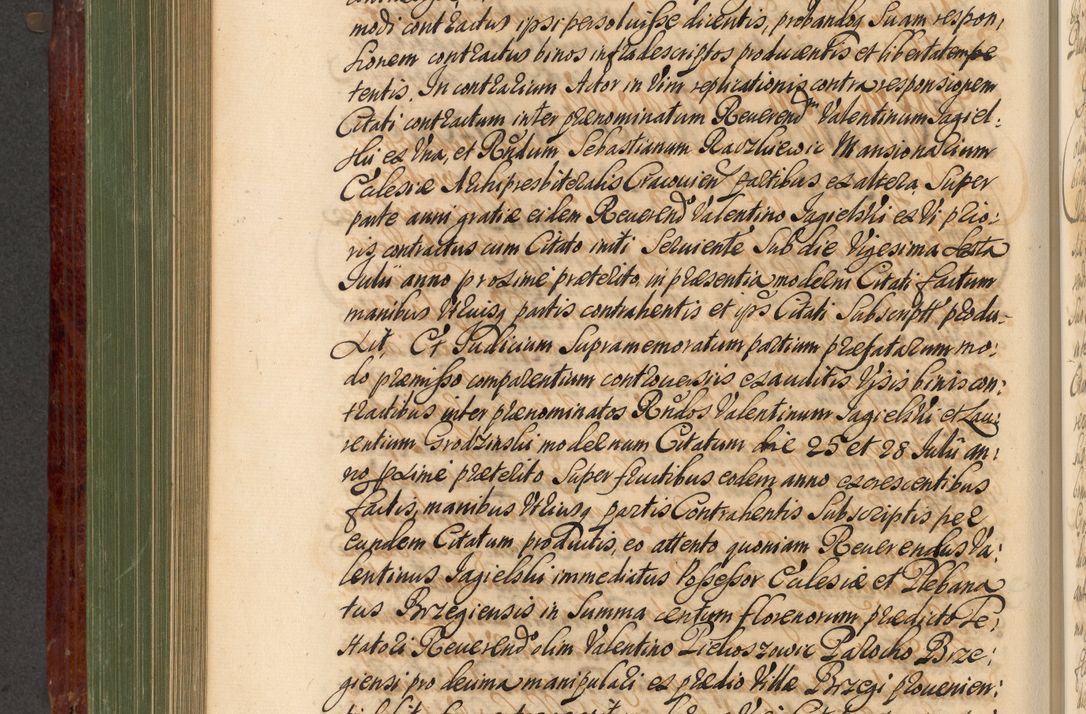 modi contractus ipsi persoluisse dicentis, probandoq suam respon,
sionem contractus binos infra descriptos producentis et libertatem pe
tentis. In contrarium Actor in vim replicationis contra responsionem
Citati contractum inter prænominatum Reuerendm Valentinum Jagiel:
skii ex vna, et Rndum Sebastianum Raczkiewic Mansionarium
Ecclesiæ Archipresbiteralis Cracouien partibus ex altera, super
parte anni gratiæ eidem Reuerendo Valentino Jagielski ex vi prio:
ris contractus cum Citato initi seruiente sub die vigesima sexta
Julii anno proxime præterito in præsentia moderni Citati factum
manibus vtriusq partis contrahentis et ipsi Citati subscript produ-
xit, Et Judicium supramemoratum partium præfatarum mo:
do præmisso comparentium controuersiis exauditis visis binis con:
tractibus inter prænominatos Rndos Valentinum Jagielski et Lau:
rentium Grodzinski modernum Citatum die 25 et 28 Julii an:
no proxime præterito super fructibus eodem anno excrescentibus
factis, manibus vtriusq partis Contrahentis subscriptis per
eundem Citatum productis, eo attento quoniam Reuerendus Va:
lentinus Jagielski immediatus Possessor Ecclesiæ et Plebana
tus Brzegiensis in summa centum florenorum prædicto Te,
statori Reuerendo olim Valentino Pielioszowic Parocho Brze:
giensi pro decima manipulari ex prædio Villæ Brzegi prouenien: